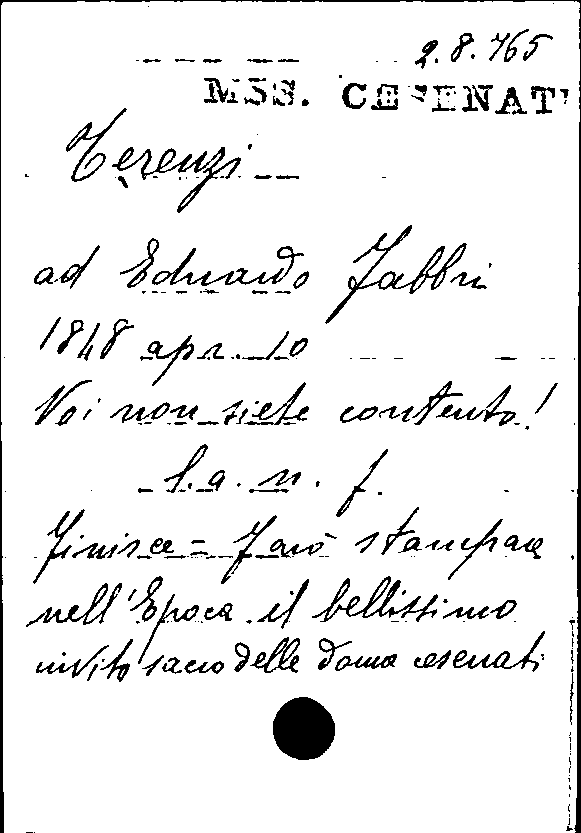 2.8.765
MSS. CESENATI
Terenzi
ad Eduardo Fabbri
1848 apr. 10
Voi non siete contento!
l. a. n. f.
Finisce = Farò stampare
nell'Epoca il bellissimo
invito sacro delle donne cesenati